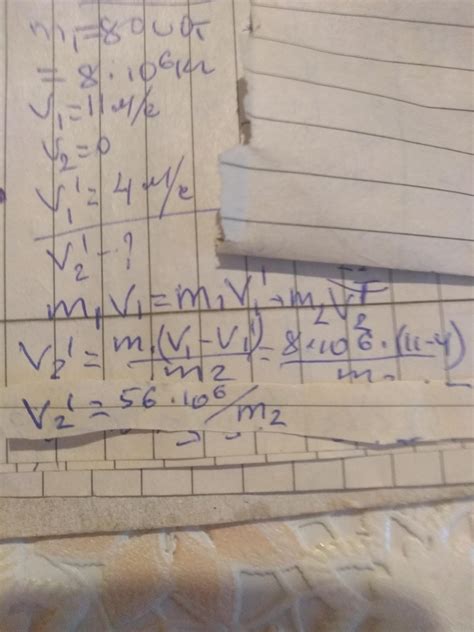 m₁=800т
= 8·10⁶кг
V₁=11м/с
V₂=0
V₁'=4м/с
V₂'-?
m₁V₁=m₁V₁'+m₂V₂'
V₂'= m₁(V₁-V₁')/m₂ = 8·10⁶·(11-4)/m
V₂'=56·10⁶/m₂